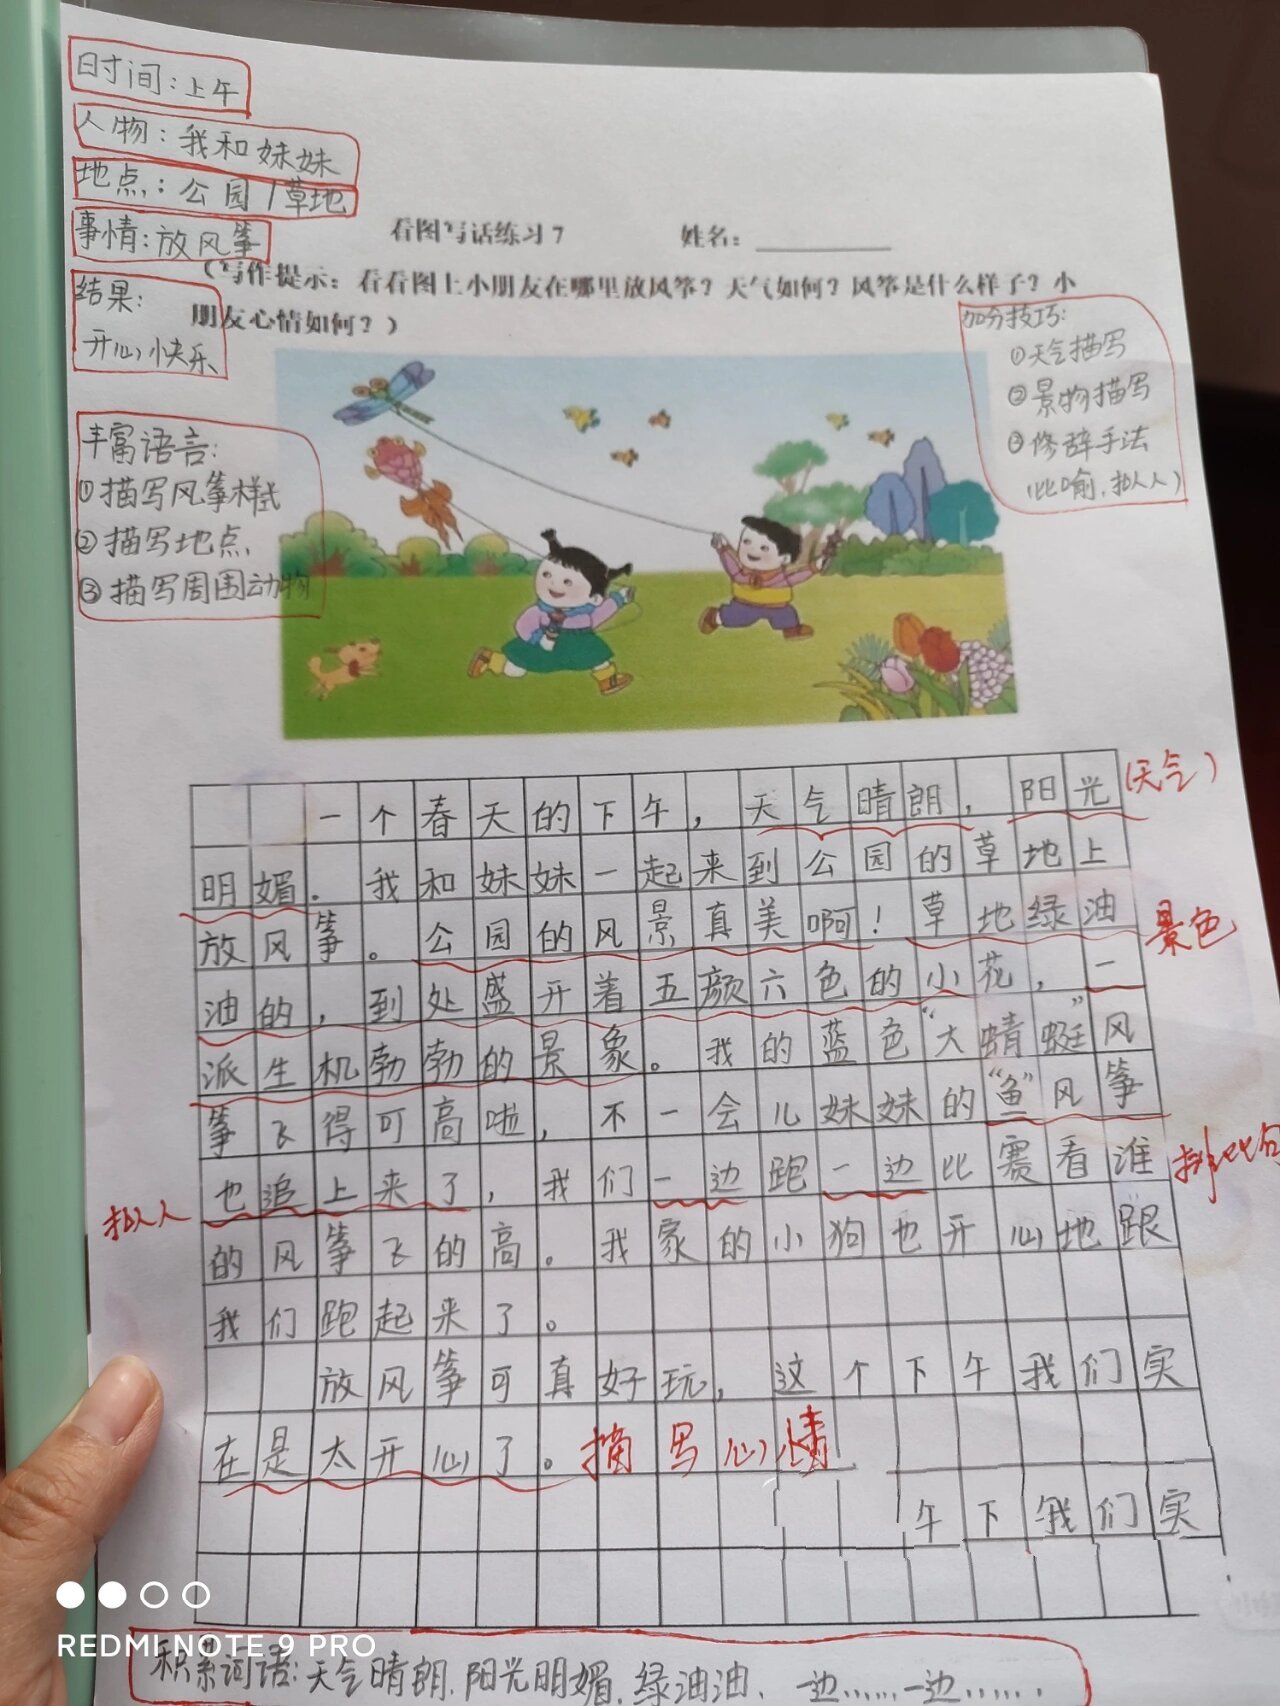 时间：上午
人物：我和妹妹
地点：公园/草地
事情：放风筝
结果：
开心快乐
丰富语言：
①描写风筝样式
②描写地点
③描写周围动物
看图写话练习7 姓名：
（写作提示：看看图上小朋友在哪里放风筝？天气如何？风筝是什么样子？小
朋友心情如何？）
加分技巧：
①天气描写
②景物描写
③修辞手法
（比喻，拟人）
一个春天的下午，天气晴朗，阳光
（天气）
明媚。我和妹妹一起来到公园的草地上
放风筝。公园的风景真美啊！草地绿油
景色
油的，到处盛开着五颜六色的小花，一
派生机勃勃的景象。我的蓝色“大蜻蜓”风
筝飞得可高啦，不一会儿妹妹的“鱼”风筝
也追上来了，我们一边跑一边比赛看谁
拟人
排比句
的风筝飞的高。我家的小狗也开心地跟
我们跑起来了。
放风筝可真好玩，这个下午我们实
在是太开心了。描写心情
午下我们实
积累词语：天气晴朗，阳光明媚，绿油油，一边……一边……
REDMI NOTE 9 PRO